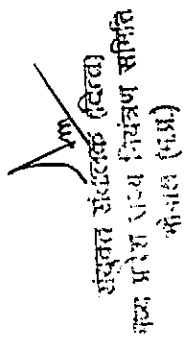 संयुक्त संचालक (वित्त)
मध्य प्रदेश एड्स नियंत्रण समिति
भोपाल (म.प्र.)